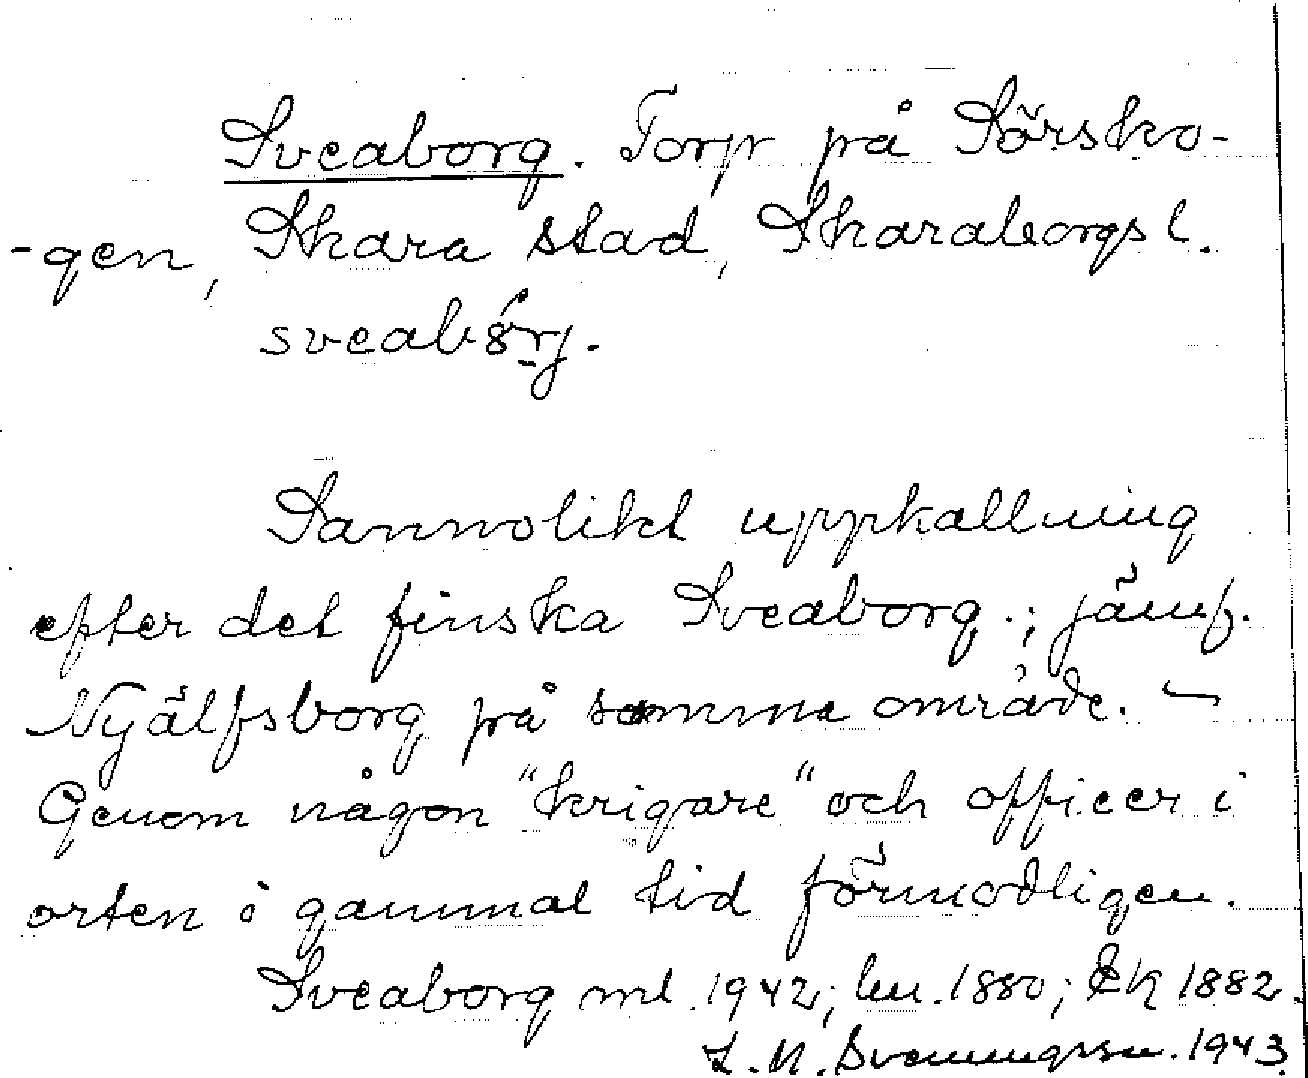 Sveaborg. Torp på Sörsko-
-gen, Skara stad, Skaraborgs l.
sveabörj.
Sannolikt uppkallning
efter det finska Sveaborg.; jämf.
Nyälfsborg på samma område. —
Genom någon "krigare" och officer i
orten i gammal tid förmodligen.
Sveaborg ml 1942; hu. 1880; Ek 1882.
L. M. Svenungsson. 1943.